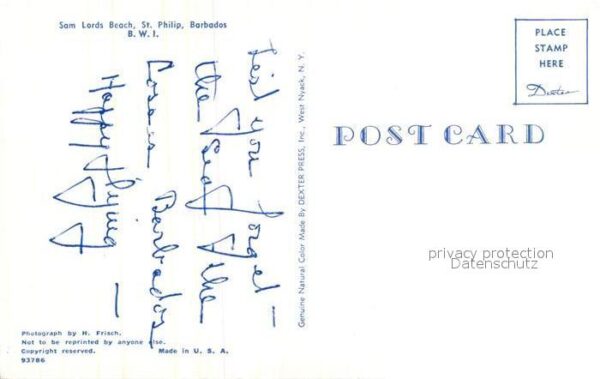 Sam Lords Beach, St. Philip, Barbados
B. W. I.
Lest you forget —
the Seat of the
Barbados
Happy Flying —
Photograph by H. Frisch.
Not to be reprinted by anyone else.
Copyright reserved. Made in U. S. A.
93786
Genuine Natural Color Made By DEXTER PRESS, Inc., West Nyack, N. Y.
POST CARD
PLACE
STAMP
HERE
Dexter
privacy protection
Datenschutz